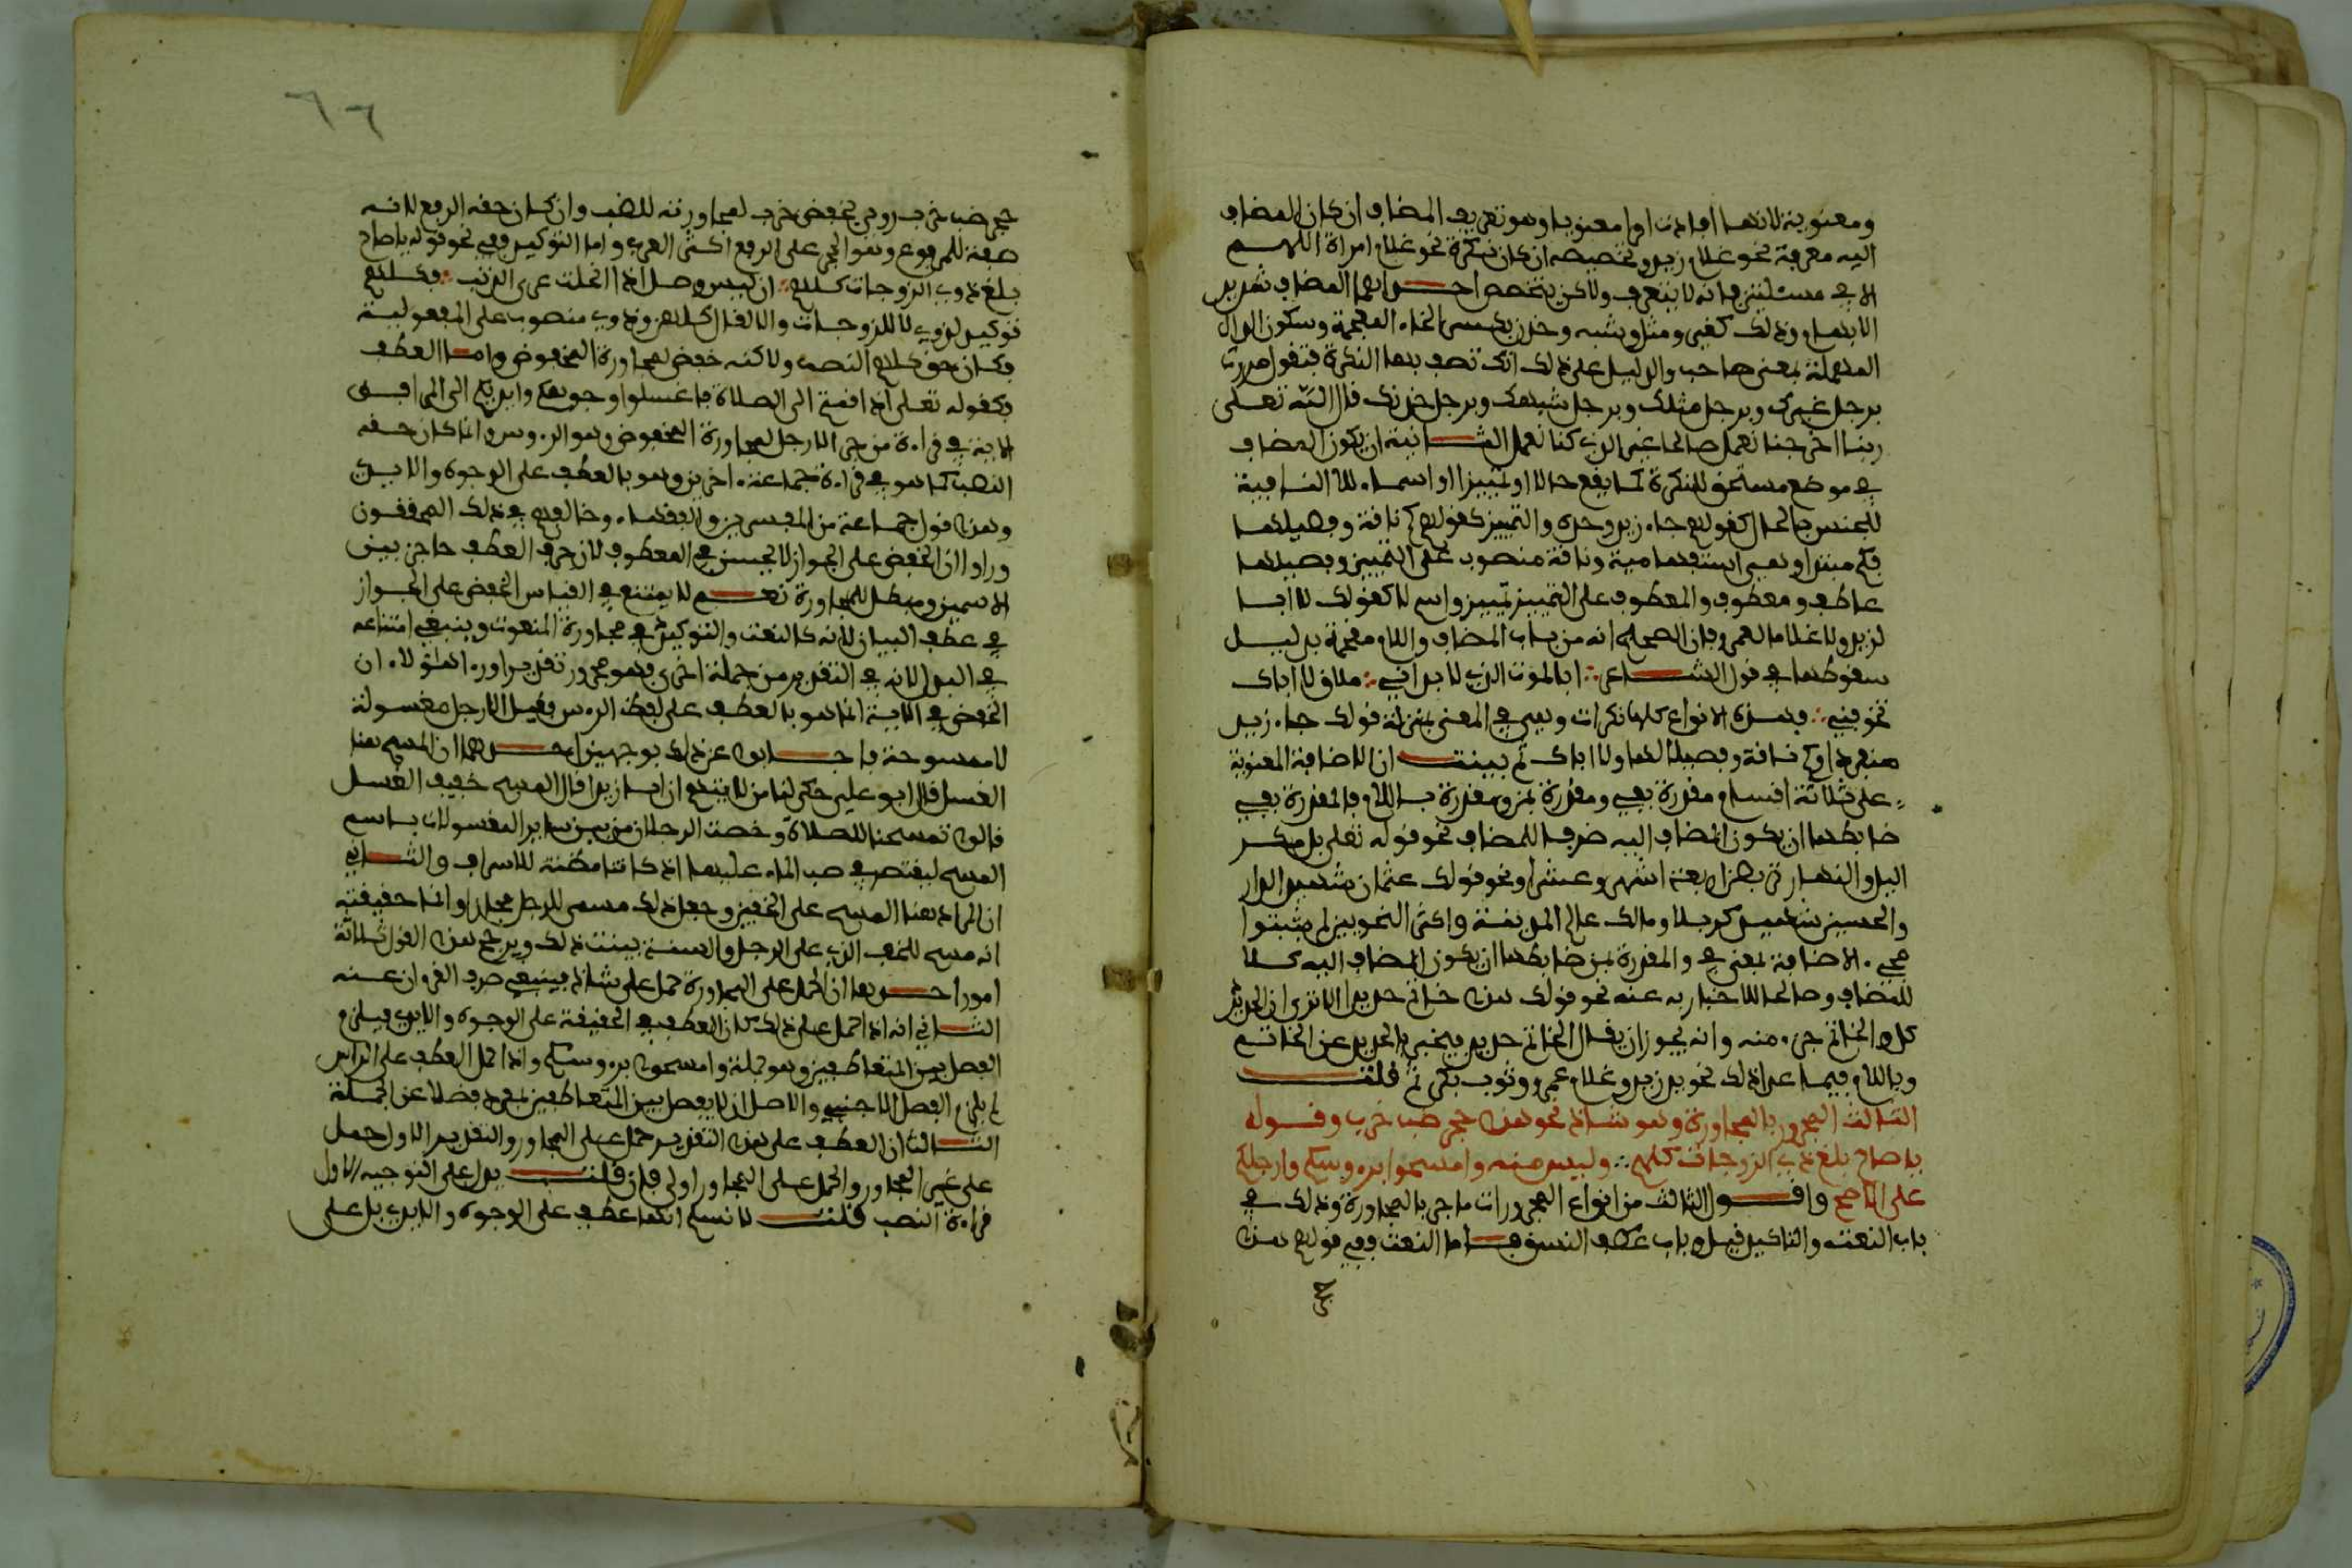 ومعنوية لانها افادت امرا معنويا وهو تعريف المضاف ان كان المضاف
اليه معرفة نحو غلام زيد وتخصيصه ان كان نكرة نحو غلام امراة اللهم
الا في مسئلتين فانه لا يتعرف ولاكن يتخصص احداهما المضاف شديد
الابهام وذلك كغير ومثل وشبه وخدن بكسر الخاء المعجمة وسكون الدال
المهملة بمعنى صاحب والدليل على ذلك انك تصف بهما النكرة فتقول مررت
برجل غيرك وبرجل مثلك وبرجل شبهك وبرجل خدنك قال الله تعلى
ربنا اخرجنا نعمل صالحا غير الذي كنا نعمل الثانية ان يكون المضاف
في موضع مستحق للنكرة كما يقع حالا او تمييزا او اسماء للا النافية
للجنس فالحال كقولهم جاء زيد وحده والتمييز كقولهم كم ناقة وفصيلها
فكم مبتدا وهي استفهامية وناقة منصوب على التمييز وفصيلها
عاطف ومعطوف والمعطوف على التمييز تمييز واسم لا كقولك لا ابا
لزيد ولا غلاما لعمرو فان الصحيح انه من باب المضاف واللام مقحمة بدليل
سقوطها في قول الشاعر ∴ ابالموت الذي لا بد اني ∴ ملاق لا اباك
تخوفيني ∴ فهذه الانواع كلها نكرات وهي في المعنى بمنزلة قولك جاء زيد
منفردا وكم ناقة وفصيلا لها ولا ابا لك ثم بينت ان الاضافة المعنوية
على ثلاثة اقسام مقدرة بفي ومقدرة بمن ومقدرة باللام فالمقدرة بفي
ضابطها ان يكون المضاف اليه ظرفا للمضاف نحو قوله تعلى بل مكر
اليل والنهار تربص اربعة اشهر وعشرا ونحو قولك عثمان شهيد الدار
والحسين شهيد كربلا ومالك عالم المدينة واكثر النحويين لم يثبتوا
مجيء الاضافة بمعنى في والمقدرة بمن ضابطها ان يكون المضاف اليه كلا
للمضاف وصالحا للاخبار به عنه نحو قولك هذا خاتم حديد الا ترى ان الحديد
كل والخاتم جزء منه وانه يجوز ان يقال الخاتم حديد فيخبر بالحديد عن الخاتم
وباللام فيما عدا ذلك نحو يد زيد وغلام عمرو وثوب بكر ثم قلت
الثالث المجرور بالمجاورة وهو شاذ نحو هذا جحر ضب خرب وقوله
يا صاح بلغ ذوي الزوجات كلهم ∴ وليس منه وامسحوا برءوسكم وارجلكم
على الاصح واقول الثالث من انواع المجرورات ما جر بالمجاورة وذلك في
باب النعت والتاكيد قيل وباب عطف النسق فاما النعت ففي قولهم هذا
جحر
٦٦
جحر ضب خرب روي بخفض خرب لمجاورته للضب وان كان حقه الرفع لانه
صفة للمرفوع وهو الجحر على الرفع اكثر العرب واما التوكيد ففي نحو قوله يا صاح
بلغ ذوي الزوجات كلهم ∴ ان ليس وصل اذا انحلت عرى الذنب ∴ فكلهم
توكيد لذوي لا للزوجات والا لقال كلهن وذوي منصوب على المفعولية
فكان حق كلهم النصب ولاكنه خفض لمجاورة المخفوض واما العطف
فكقوله تعلى اذا قمتم الى الصلاة فاغسلوا وجوهكم وايديكم الى المرافق
الاية في قراءة من جر الارجل لمجاورة المخفوض وهو الرءوس وانما كان حقه
النصب كما هو في قراءة جماعة اخرين وهو بالعطف على الوجوه والايدي
وهذا قول جماعة من المفسرين والفقهاء وخالفهم في ذلك المحققون
وراوا ان الخفض على الجوار لا يحسن في المعطوف لان حرف العطف حاجز بين
الاسمين ومبطل للمجاورة نعم لا يمتنع في القياس الخفض على الجوار
في عطف البيان لانه كالنعت والتوكيد في مجاورة المنعوت وينبغي امتناعه
في البدل لانه في التقدير من جملة اخرى فهو محجوز تقديرا وراى هؤلاء ان
الخفض في الاية انما هو بالعطف على لفظ الرءوس فقيل الارجل مغسولة
لا ممسوحة فاجابوا عن ذلك بوجهين احدهما ان المسح هنا
الغسل قال ابو علي حكى لنا من لا يتهم ان ابا زيد قال المسح خفيف الغسل
قالوا تمسحنا للصلاة وخصت الرجلان من بين ساير المغسولات باسم
المسح ليقتصد في صب الماء عليهما اذ كانتا مظنة للاسراف والثاني
ان المراد هنا المسح على الخفين وجعل ذلك مسحا للرجل مجازا وانما حقيقته
انه مسح للخف الذي على الرجل والسنة بينت ذلك ويرجح هذا القول ثلاثة
امور احدها ان الحمل على المجاورة حمل على شاذ فينبغي صرف القرءان عنه
الثاني انه اذا حمل على ذلك كان العطف في الحقيقة على الوجوه والايدي فيلزم
الفصل بين المتعاطفين وهو جملة وامسحوا برءوسكم واذا حمل العطف على الراس
لم يلزم الفصل الاجنبي والاصل ان لا يفصل بين المتعاطفين بمفرد فضلا عن الجملة
الثالث ان العطف على هذا التقدير حمل على المجاور والتقدير الاول حمل
على غير المجاور والحمل على المجاور اولى فان قلت يدل على التوجيه الاول
قراءة النصب قلت لا نسلم انها عطف على الوجوه والايدي بل على